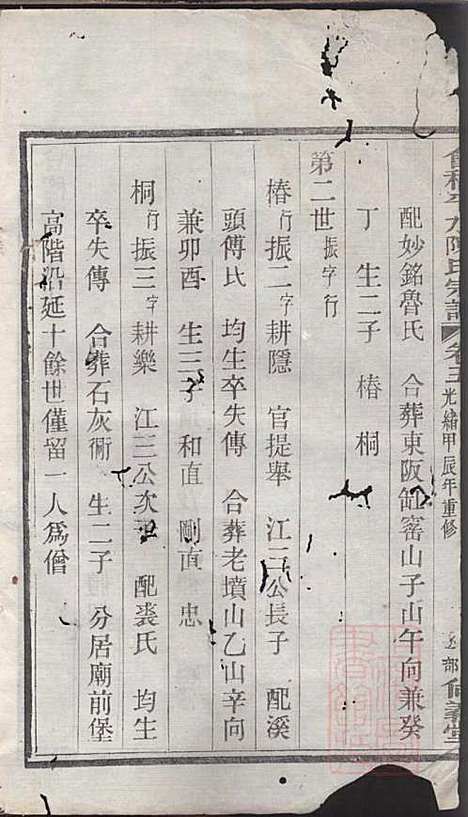 會稽平水陳氏宗譜 卷三 光緒甲辰年重修 尙義堂
配妙銘魯氏 合葬東阪缸窰山子山午向兼癸
丁 生二子 椿 桐
第二世振字行
椿行振二字耕隱 官提舉 江三公長子 配溪
頭傅氏 均生卒失傳 合葬老墳山乙山辛向
兼卯酉 生三子 和直 剛直 忠
桐行振三字耕樂 江三公次 配裘氏 均生
卒失傳 合葬石灰衕 生二子 分居廟前堡
高階沿延十餘世僅留一人爲僧